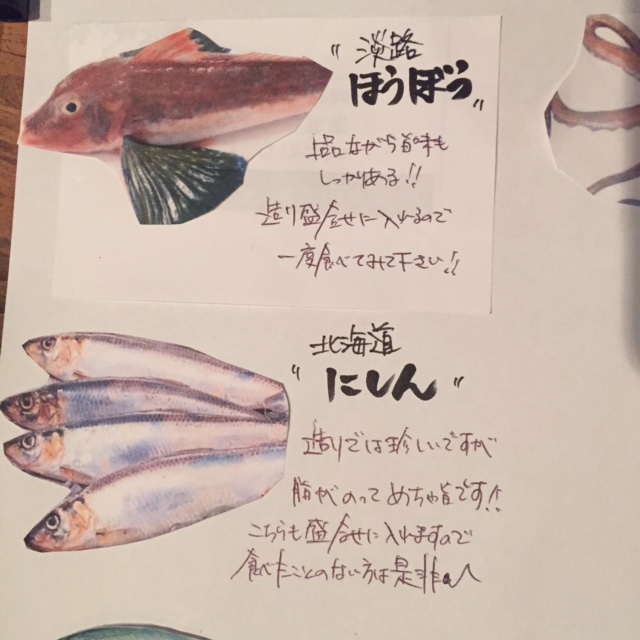 "淡路
ほうぼう"
上品ながら旨味も
しっかりある!!
造り盛合せに入れるので
一度食べてみて下さい!!
北海道
"にしん"
造りでは珍しいですが
脂がのってめちゃ旨です!!
こちらも盛合せに入れますので
食べたことのない方は是非